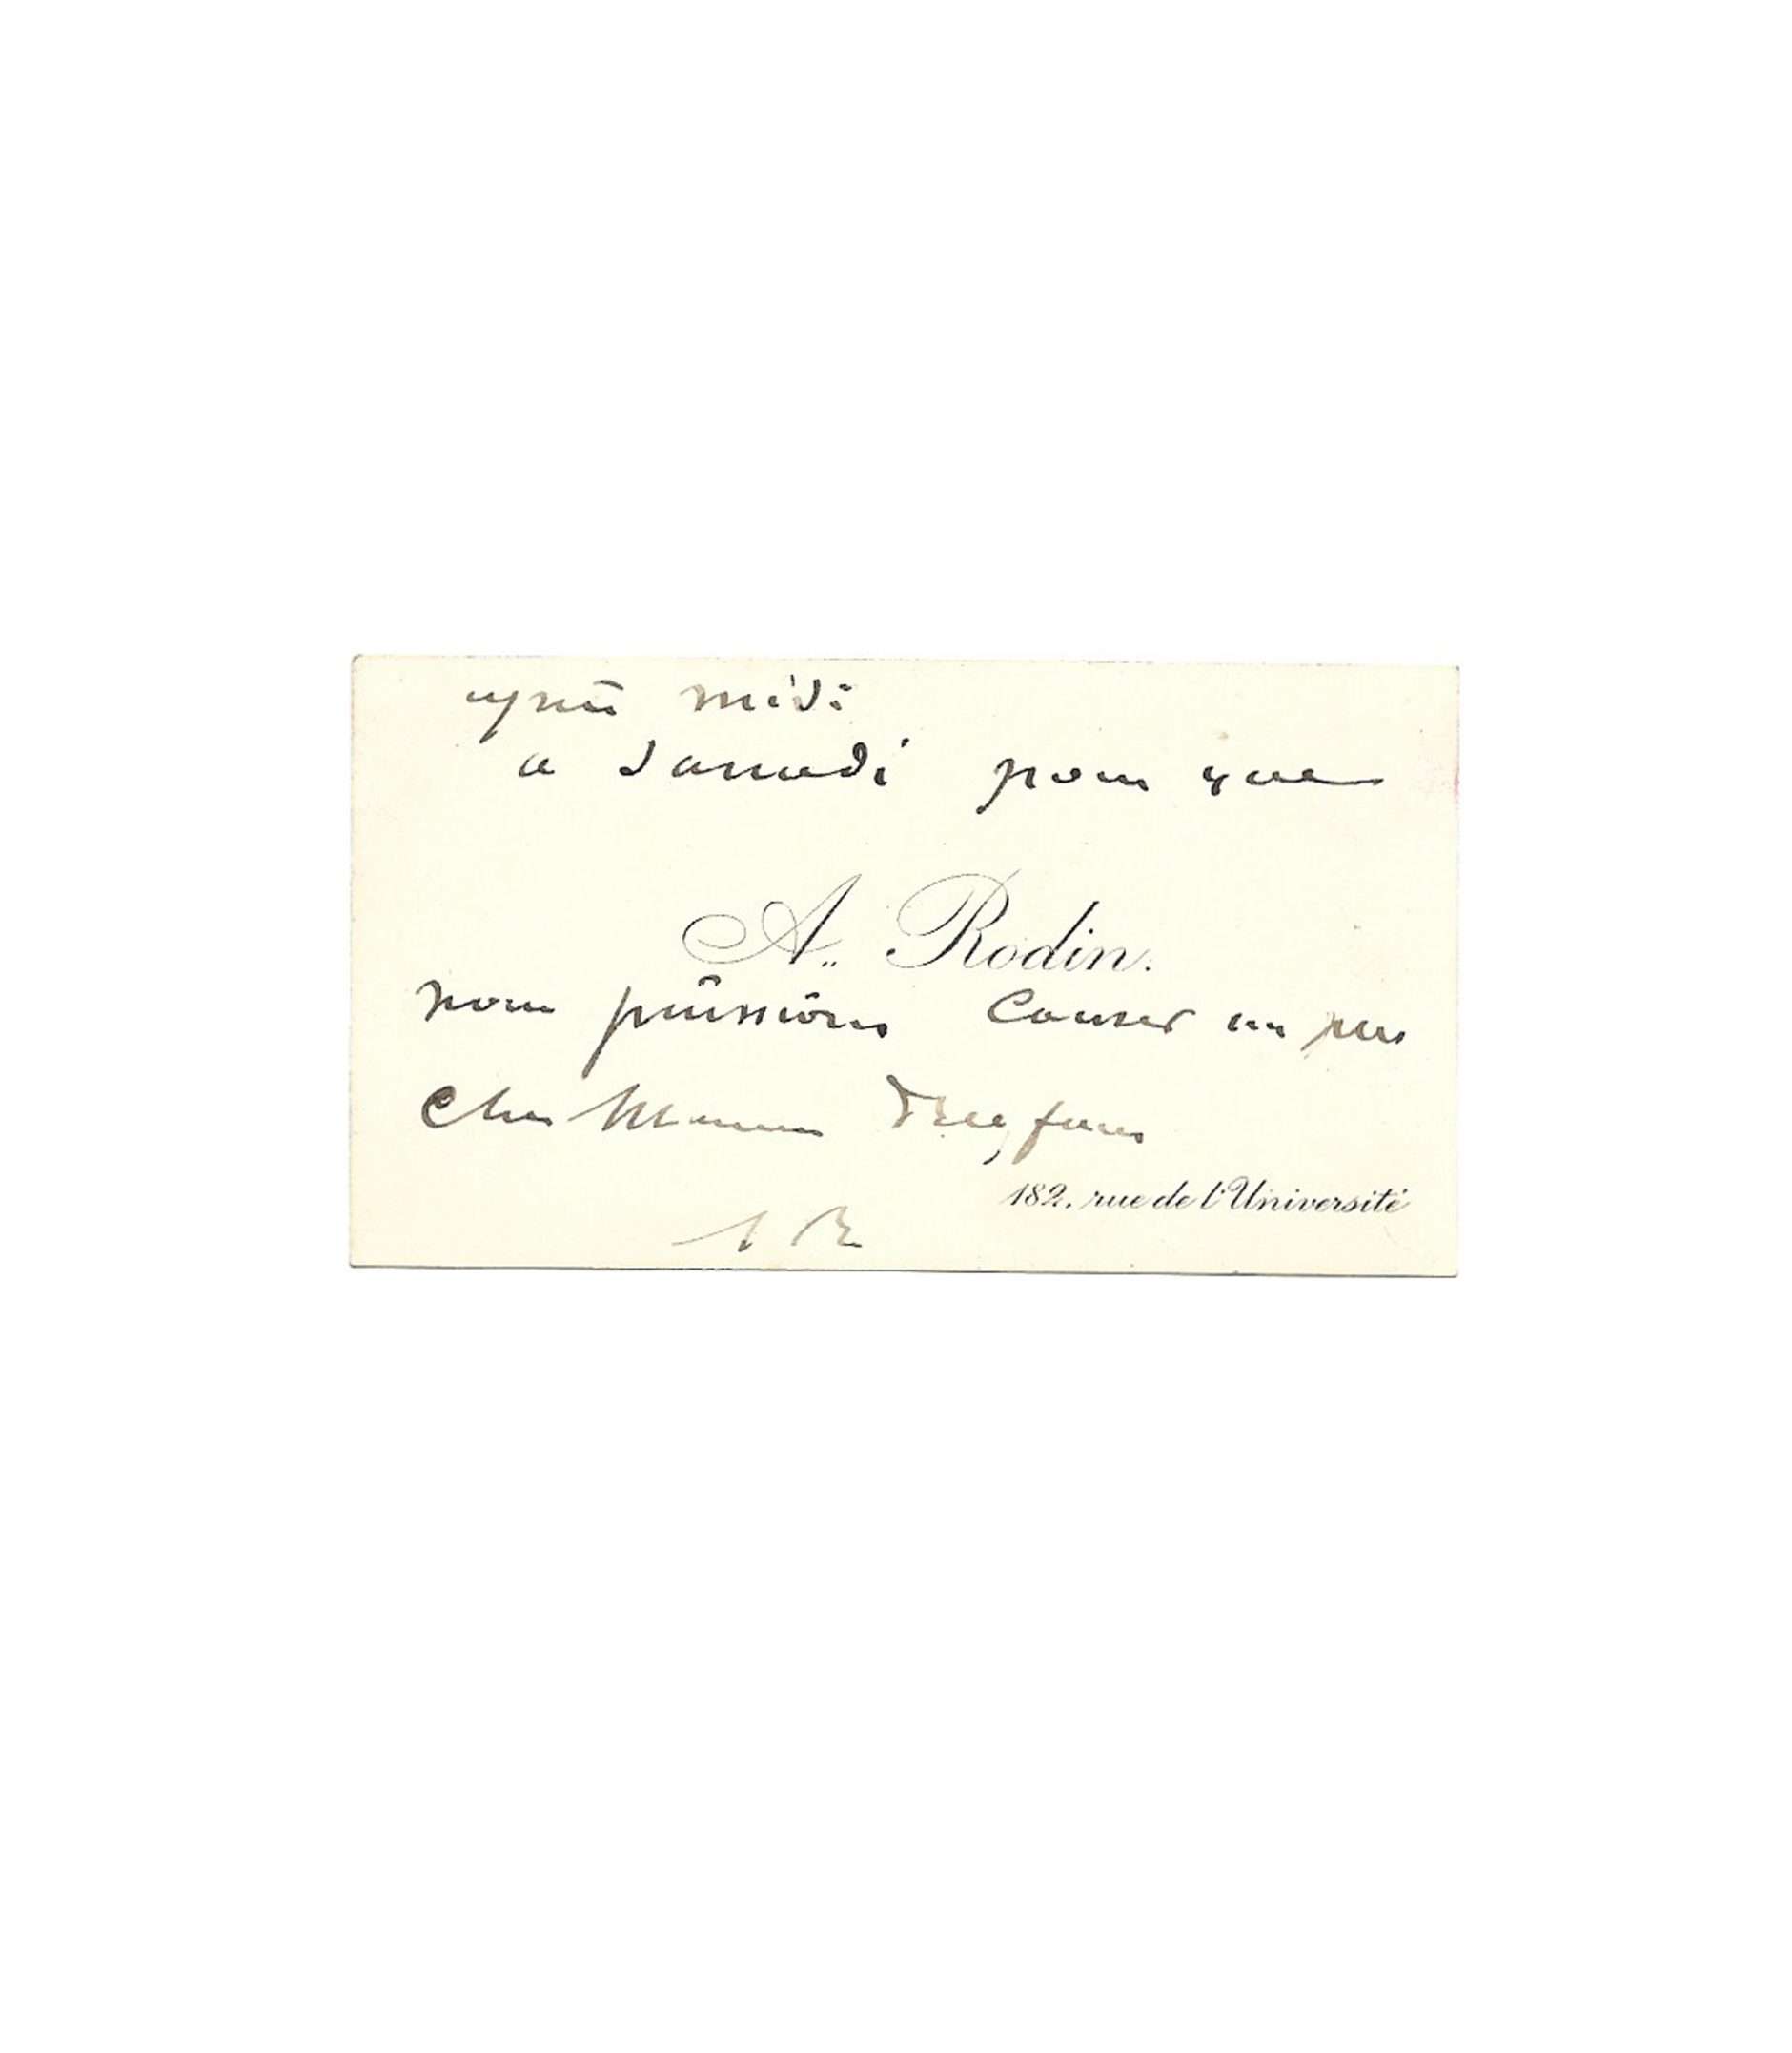 après midi
a samedi pour que
A. Rodin.
nous puissions causer un peu
Cher Monsieur Dreyfus
182, rue de l'Université
A R